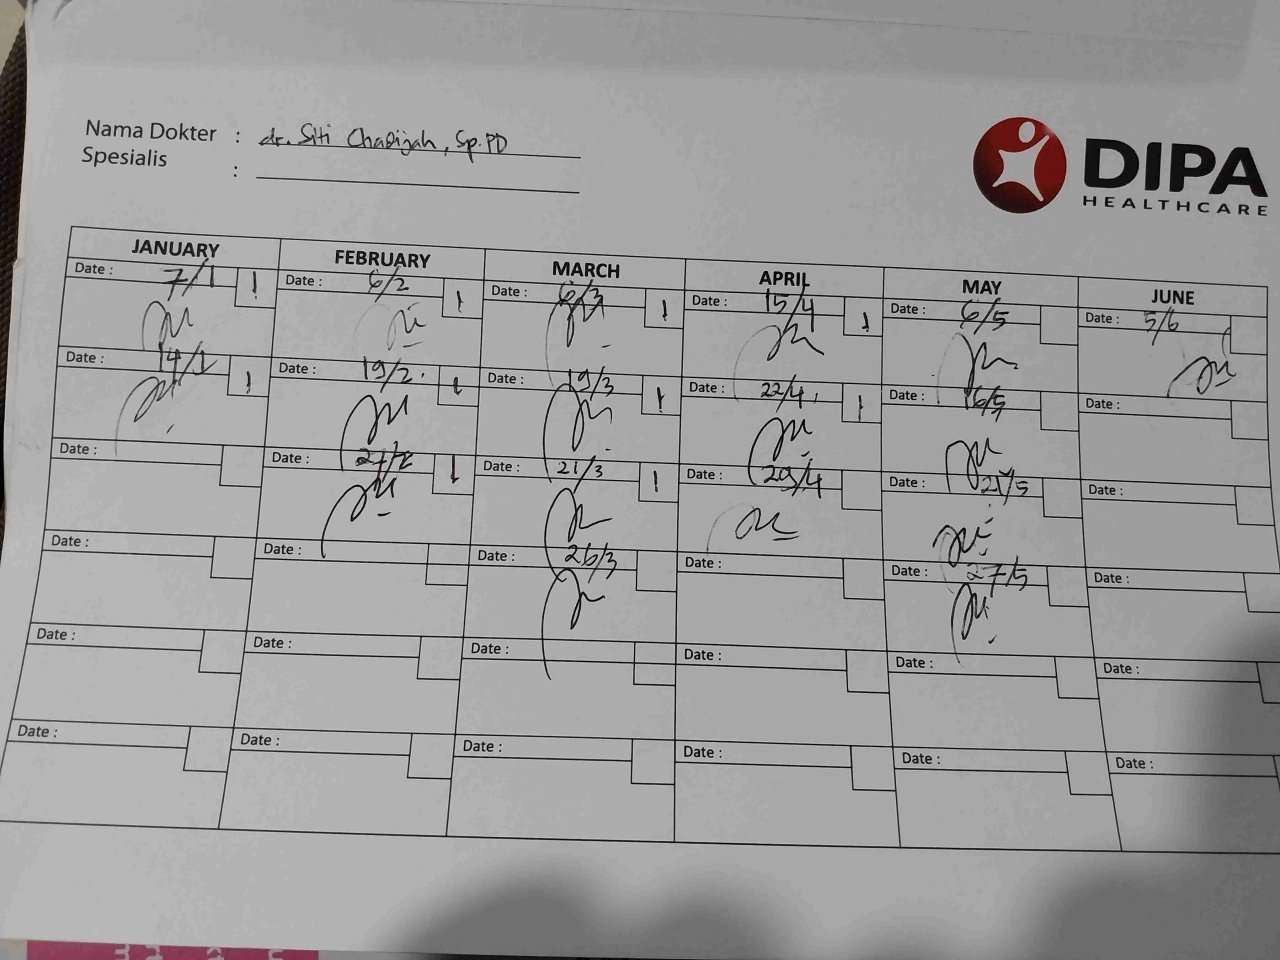 Nama Dokter : dr. Siti Chadijah, Sp.PD
Spesialis :
DIPA
HEALTHCARE
JANUARY FEBRUARY MARCH APRIL MAY JUNE
Date : 7/1 Date : 6/2 Date : 6/3 Date : 15/4 Date : 6/5 Date : 5/6
Date : 14/1 Date : 19/2 Date : 19/3 Date : 22/4 Date : 16/5 Date :
Date : Date : Date : 21/3 Date : 29/4 Date : 21/5 Date :
Date : Date : Date : 26/3 Date : Date : 27/5 Date :
Date : Date : Date : Date : Date : Date :
Date : Date : Date : Date : Date : Date :